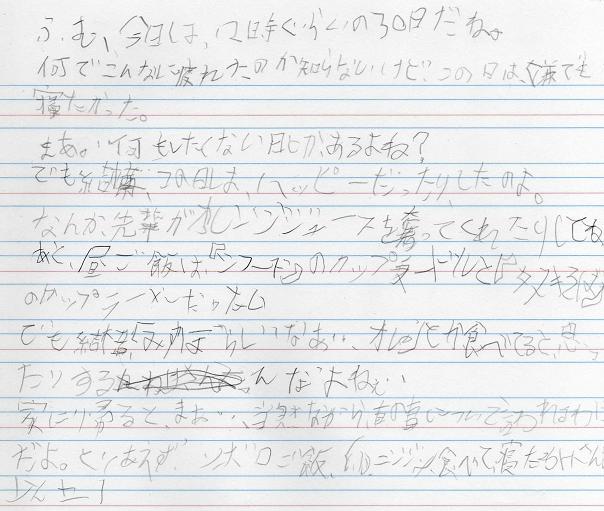 ふむ、今日は、12時ぐらいの30日だね。
何でこんなに疲れたのか知らないけど、この日は、嫌でも
寝たかった。
まぁ…何もしたくない日とか、あるよね?
でも結構、この日は、ハッピーだったりしたのよ。
なんか、先輩がオレンジジュースを奢ってくれたりしてね
あと、昼ご飯は、『シーフード』のカップヌードルと『タヌキそば』
のカップラーメンだったな
でも結構、なあ…、オレとか食べてると、思っ
たりする んだよねぇ…
家に帰ると、まぁ…、当然ながら、
だよ。とりあえず、ソボロご飯、食べて、寝た